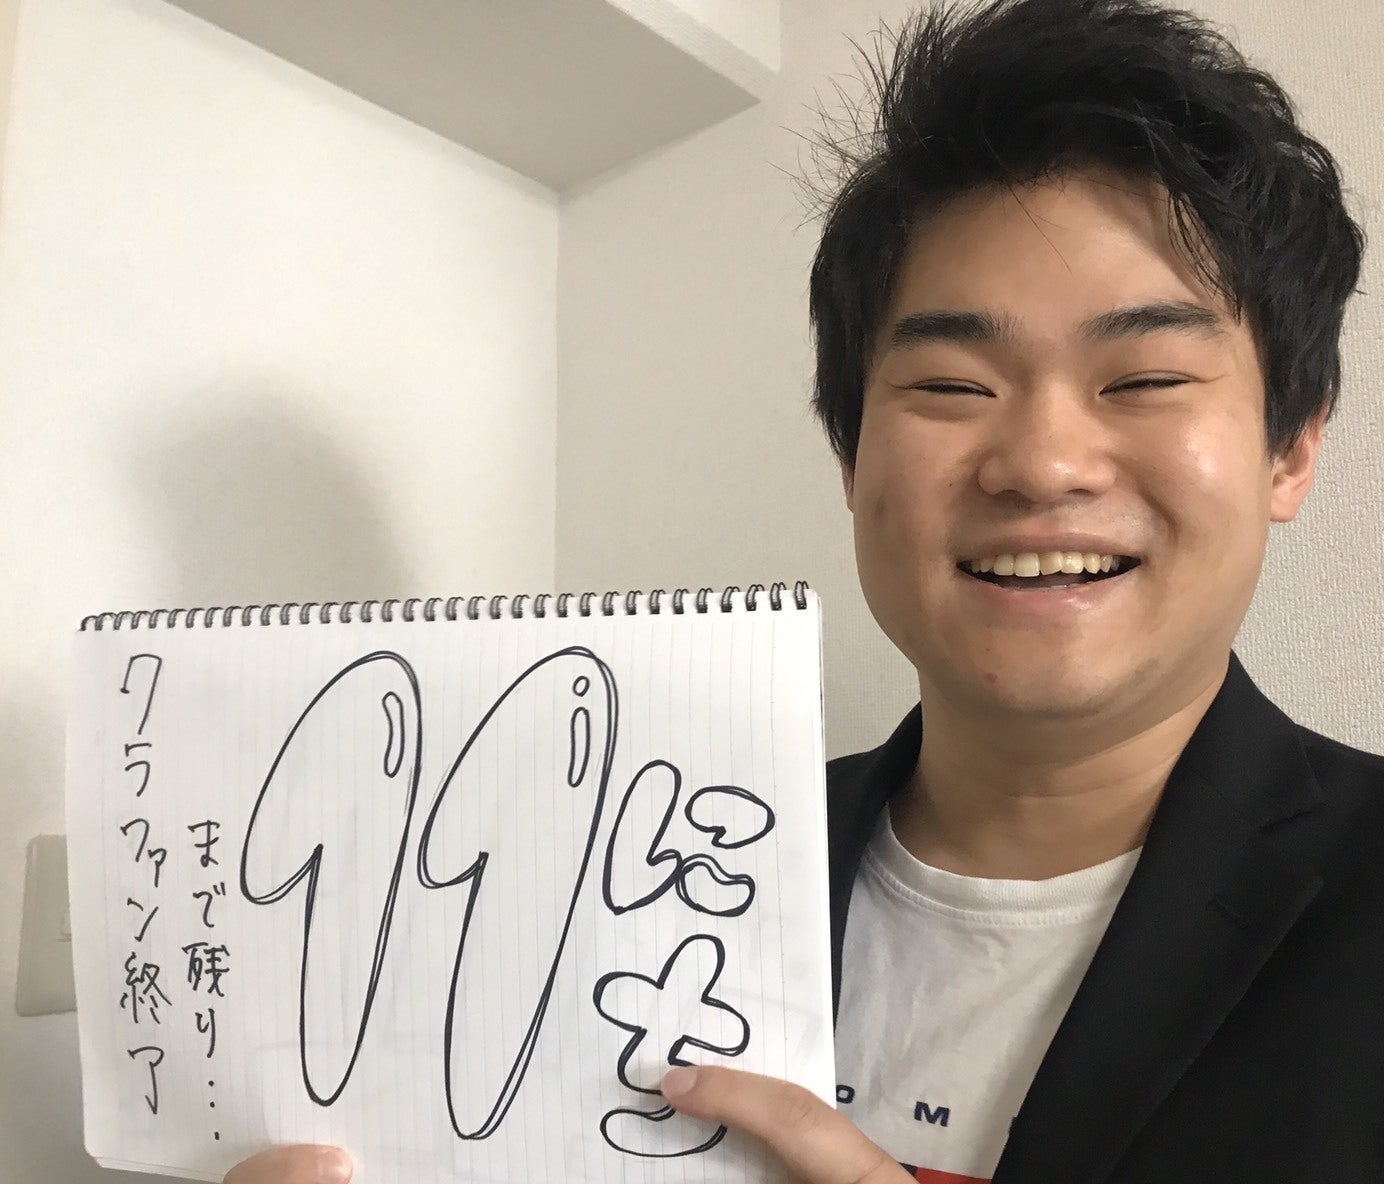 クラファン終了
まで残り…
11にち
OM